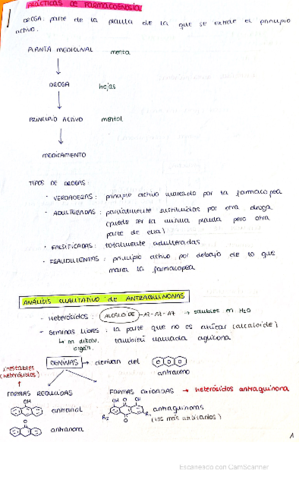 PRÁCTICAS DE FARMACOGNOSIA
DROGA: parte de la planta de la que se extrae el principio
activo.
PLANTA MEDICINAL menta
DROGA hojas
PRINCIPIO ACTIVO mentol
MEDICAMENTO
TIPOS DE DROGAS:
- VERDADERAS: principio activo marcado por la farmacopea
- ADULTERADAS: parcialmente sustituidas por otra droga
(puede ser la misma planta pero otra
parte de ella)
- FALSIFICADAS: totalmente adulteradas.
- FRAUDULENTAS: principio activo por debajo de lo que
marca la farmacopea
ANÁLISIS CUALITATIVO DE ANTRAQUINONAS
- Heterósidos: → solubles en H2O
- Geninas libres: la parte que no es azúcar
también llamada
GENINAS → derivan del
antraceno
inestables
(heterósidos)
FORMAS REDUCIDAS FORMAS OXIDADAS → heterósidos antraquinona
OH
antranol
O
antrona
antraquinonas
(las más abundantes)
R2 R1
1
Escaneado con CamScanner